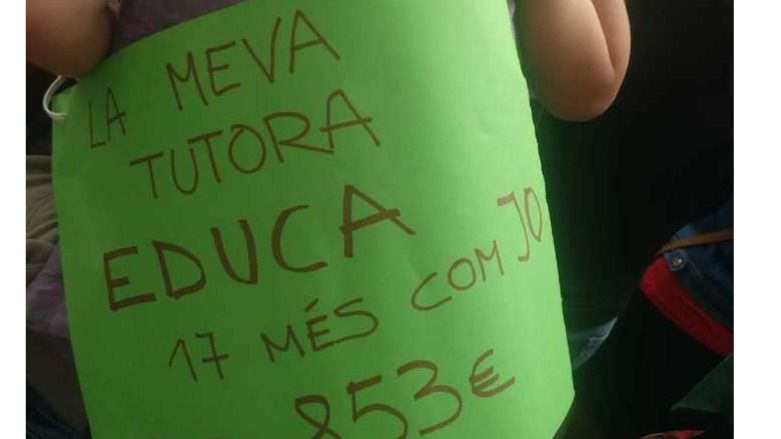 LA MEVA
TUTORA
EDUCA
17 MÉS COM JO
853€